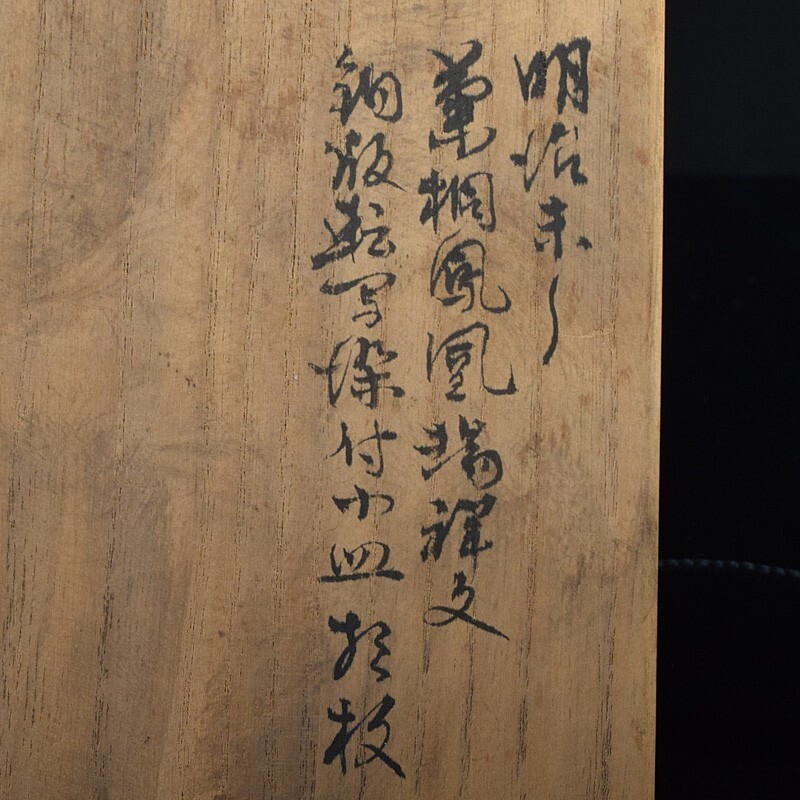 明治末〜
菊桐鳳凰瑞祥文
銅版転写染付小皿拾枚